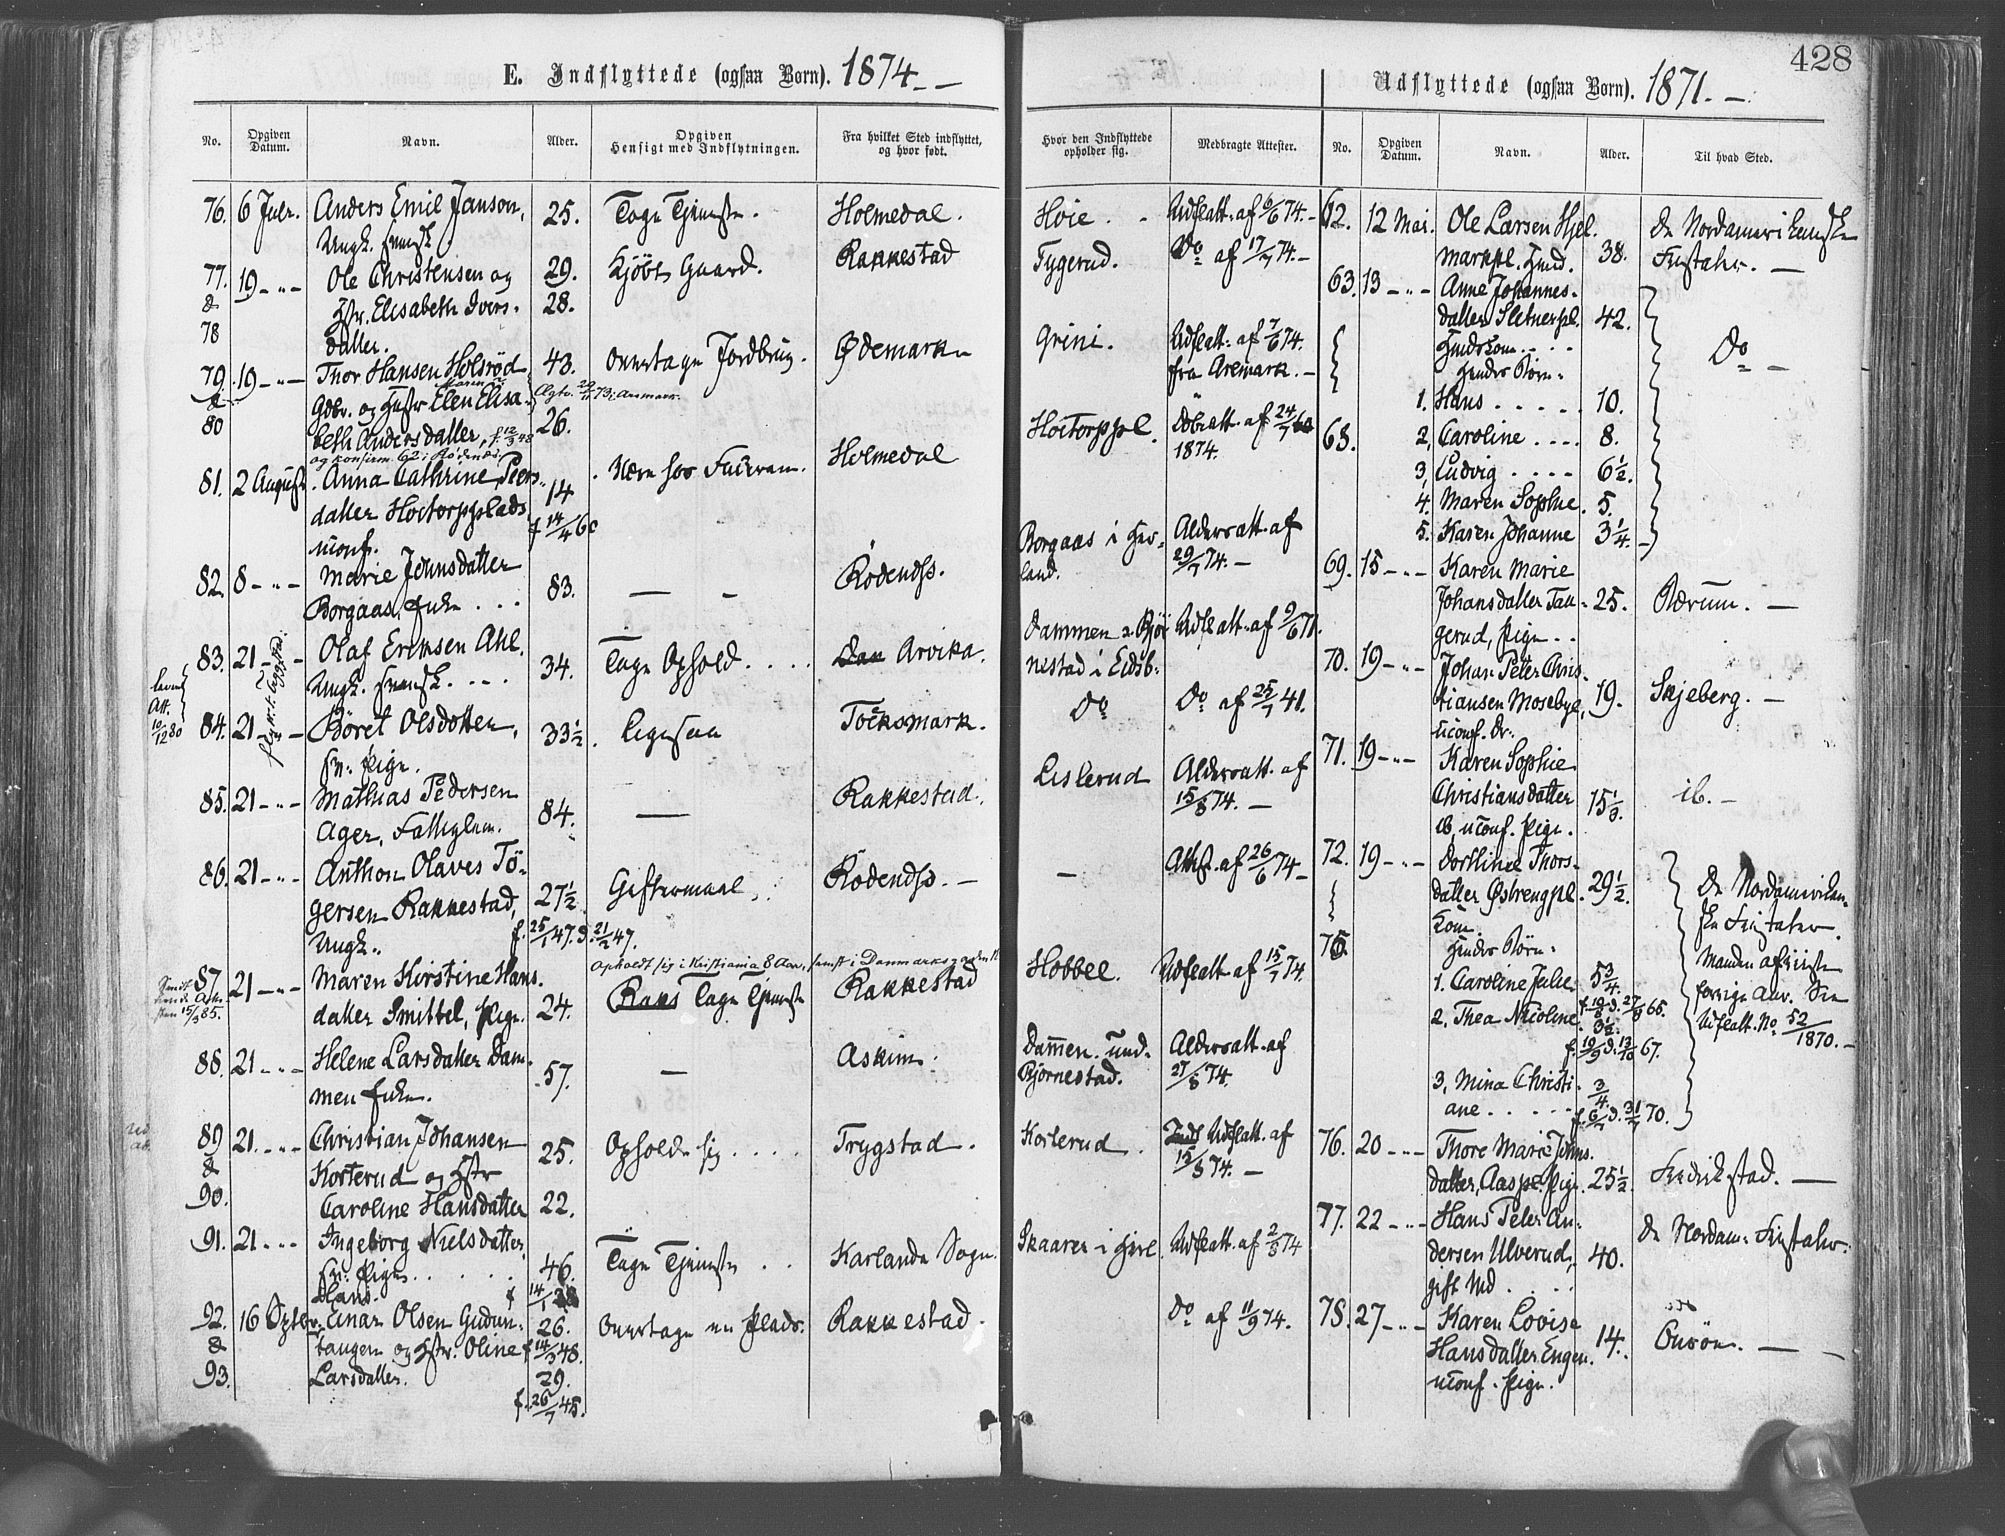 428
E. Indflyttede (ogsaa Børn). 1874. -
No. Opgiven Datum. Navn. Alder. Opgiven Hensigt med Indflytningen. Fra hvilket Sted indflyttet, og hvor født.
76. 6 Julr. Anders Emil Janson, 25. Tage Tjeneste. Holmedal.
Ungk. svensk
77. 19 - " - Ole Christensen og 29. Kjøbt Gaard. Rakkestad
& Hstr. Elisabeth Ivers- 28.
78 datter.
79. 19 - " - Thor Hansen Holsrød 43. overtage Jordbrug. Ødemark
& Gdbr. og Hustr Maren Elen Elisa-
80 beth Andersdatter, f. 12/3 48 26.
og konfirm. 62 i Rødenæs
81. 2 August. Anna Cathrine Peers- 14 Være hos Holmedal
datter Hoetorpplads f 14/4 60
uconf.
82. 8 - " - Marie Johnsdatter 83. - - Rødends.
Borgaas, Enke . . .
83. 21 - " - Olaf Eriksen Ahl. 34. Tage Ophold . . . . Arvika.
Ungk. svensk. . . .
84. 21 - " - Børet Olsdotter, 33½. Ligesaa Tocksmark.
sv. Pige.
85. 21 - " - Mathias Pedersen 84. - Rakkestad.
Ager, Fattiglem.
86. 21 - " - Anthon Olaves Tö- 27½ Giftermaal Rödends. -
gersen Rakkestad, f. 25/1 47. d. 21/2 47.
Ungk.
Opholdt sig i Kristiania 8 Aar,
87. 21 - " - Maren Kirstine Hans- 24. Tage Tjeneste Rakkestad
datter Smittel, Pige.
88. 21 - " - Helene Larsdatter Dam- 57. - Askim.
men Enke.
89 21. - " - Christian Johansen 25. Opholde sig . . . . Trygstad.
& Korterud og Hstr
90. Caroline Hansdatter 22.
91. 21 - " - Ingeborg Nielsdatter, 46. Tage Tjeneste . . Karlanda Sogn.
sv. Pige . . . . . .
92. 16 Septbr. Einar Olsen Gudun- 26. overtage en Plads. Rakkestad.
& tangen og Hstr. Oline f 14/3 48.
93. Larsdatter. 29.
f. 26/7 45.
Hvor den Indflyttede opholder sig. Medbragte Attester.
Høie. Udflatt. af 6/6 74. -
Tygerud. Do af 17/7 74. -
Grini. Udflatt. af 7/6 74.
fra Aremark. -
Hoetorppl. Døbeatt. af 24/7
1874.
Borgaas i Hær- Aldersatt. af
land. 29/7 74. -
Dammen u. Björ- Udflatt. af 9/6 71.
nestad i Eidsb.
Do Do af 25/7 41.
Lislerud Aldersatt. af
15/8 74. -
- Attst. af 26/6 74 -
Hobbel. Udflatt af 15/7 74.
Dammen. und. Aldersatt. af
Bjørnestad. 27/8 74.
Korterud Udflatt. af
15/8 74. -
Skaarer i Hærl. Udflatt. af 2/8 74
Do af 11/9 74.
Udflyttede (ogsaa Børn). 1871. -
No. Opgiven Datum. Navn. Alder. Til hvad Sted.
62. 12 Mai. Ole Larsen Hjel- De Nordamerikanske
markpl. Husd. 38. Fristater. -
63. 13 - " - Anne Johannes-
datter Sletnerpl. 42. Do -
Husdkone . . . .
Hendes Børn:
1. Hans . . . . . 10.
68. 2, Caroline . . . . 8.
3, Ludvig . . . . 6½.
4. Maren Sophie. 5.
5. Karen Johanne 3¼.
69. 15 - " - Karen Marie
Johansdatter Tan- 25. Bærum. -
gerud, Pige . .
70. 19 - " - Johan Peter Chris-
tiansen Mosebye, 19. Skjeberg. -
uconf. Dr.
71. 19 - " - Karen Sophie
Christiansdatter 15⅓. ib. -
ib, uconf. Pige.
72. 19 - " - Dorthine Thors-
datter Østrengpl. 29½. De Nordamerikan-
Kone ske Fristater.
75. Hendes Børn: Manden afreiste
1. Caroline Julie 5¾ forrige Aar. See
f. 19/8 d. 27/8 65.
2. Thea Nicoline. 3½. Udflatt. No 52/1870. -
f. 19/9 d. 13/10 67.
3, Mina Christi- ¾.
ane . . . . . f. 6/7 d. 31/7 70.
76. 20 - " - Thore Marie Johns-
datter, Aaspl. Pige. 25½. Fredrikstad. -
77. 22 - " - Hans Peter An- De Nordam. Fristater.
dersen Ulverud, 40.
gift Md . . . .
78. 27 - " - Karen Lovise
Hansdatter Engen. 14. Onsøn. - -
uconf. Pige.